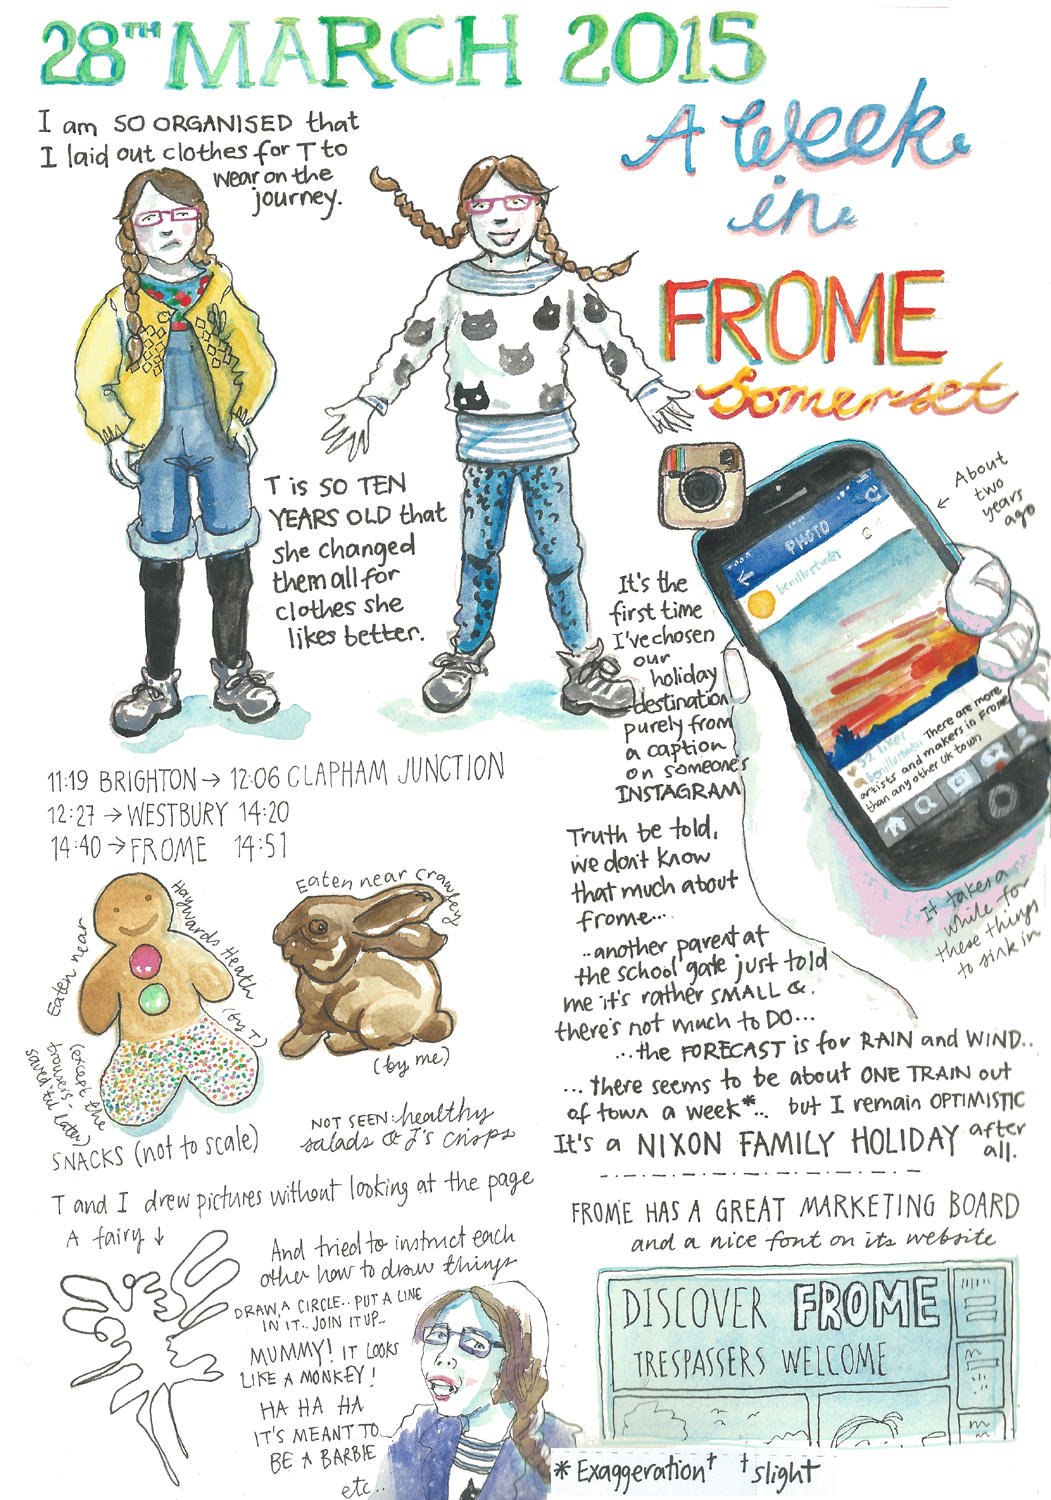 28TH MARCH 2015
A Week
in
FROME
Somerset
I am SO ORGANISED that
I laid out clothes for T to
wear on the
journey.
T is SO TEN
YEARS OLD that
she changed
them all for
clothes she
likes better.
← About
two
years
ago
It's the
first time
I've chosen
our
holiday
destination
purely from
a caption
on someone's
INSTAGRAM
PHOTO
92 likes
There are more
artists and makers in Frome
than any other UK town
It takes a
while for
these things
to sink in
11:19 BRIGHTON → 12:06 CLAPHAM JUNCTION
12:27 → WESTBURY 14:20
14:40 → FROME 14:51
Eaten near
Haywards Heath
(by T)
(except the
trousers -
saved 'til later)
Eaten near Crawley
(by me)
SNACKS (not to scale)
NOT SEEN: healthy
salads & J's crisps
Truth be told,
we don't know
that much about
frome...
..another parent at
the school gate just told
me it's rather SMALL &
there's not much to DO...
...the FORECAST is for RAIN and WIND..
... there seems to be about ONE TRAIN out
of town a week*... but I remain OPTIMISTIC
It's a NIXON FAMILY HOLIDAY after
all.
T and I drew pictures without looking at the page
A fairy ↓
And tried to instruct each
other how to draw things
DRAW A CIRCLE.. PUT A LINE
IN IT.. JOIN IT UP..
MUMMY! IT LOOKS
LIKE A MONKEY!
HA HA HA
IT'S MEANT TO
BE A BARBIE
etc..
FROME HAS A GREAT MARKETING BOARD
and a nice font on its website
DISCOVER FROME
TRESPASSERS WELCOME
* Exaggeration† † slight